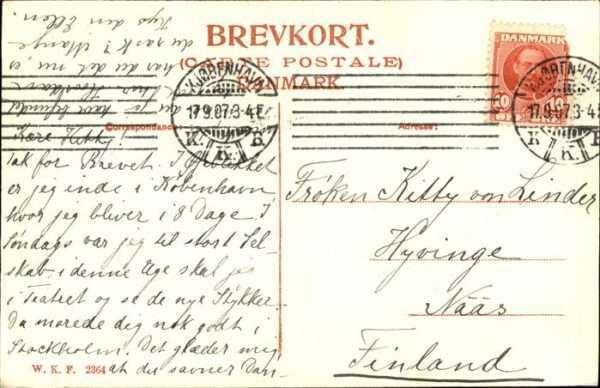 BREVKORT.
(CARTE POSTALE)
DANMARK.
DANMARK
10
KJØBENHAVN
17.9.07.3-4E
K. K. B
KJØBENHAVN
17.9.07.3-4E
K. K. B
Correspondance:
Adresse:
Kære Kitty!
Tak for Brevet. I Øjeblikket
er jeg inde i København,
hvor jeg bliver i 8 Dage. I
Søndags var jeg til stort Sel-
skab, i denne Uge skal jeg
i Teatret og se de nye Stykker.
Du morede dig nok godt i
Stockholm. Det glæder mig
at du savner Dan-
du jo
har du det nu
du rask? Mange
Kys din Ellen.
Frøken Kitty von Linder
Hyvinge
Nääs
Finland
W. K. F. 2364